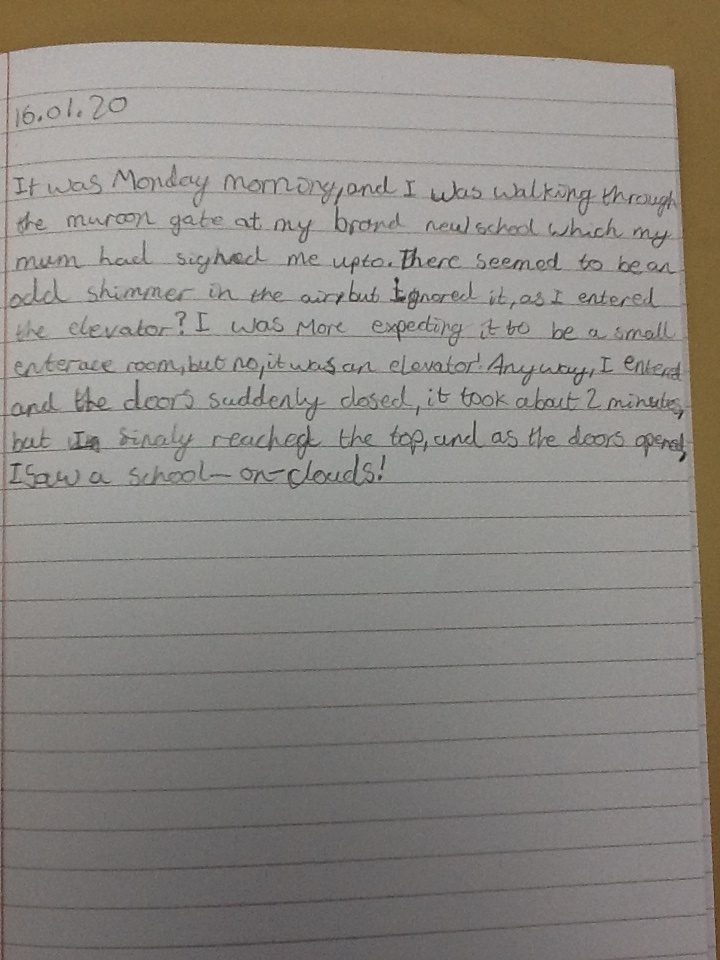 16.01.20
It was Monday morning, and I was walking through
the muroon gate at my brand new school which my
mum had sighed me upto. There seemed to be an
odd shimmer in the air, but Ignored it, as I entered
the elevator? I was More expecting it to be a small
enterace room, but no, it was an elevator! Anyway, I enterd
and the doors suddenly closed, it took about 2 minutes,
but finaly reached the top, and as the doors opened,
I saw a school-on-clouds!